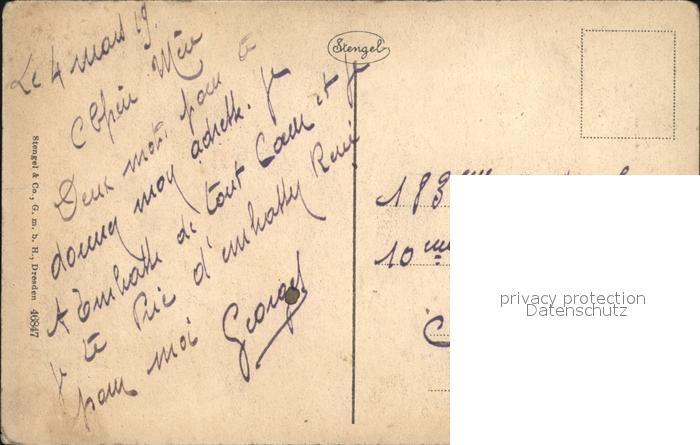 Le 4 mars 19.
Chère Mère
Deux mots pour te
donner mon adresse. je
t'Embrasse de tout Cœur et je
je te Prie d'embrasser René
pour moi Georges
Stengel
Stengel & Co., G. m. b. H., Dresden 46847
183
10 eme
C
privacy protection
Datenschutz